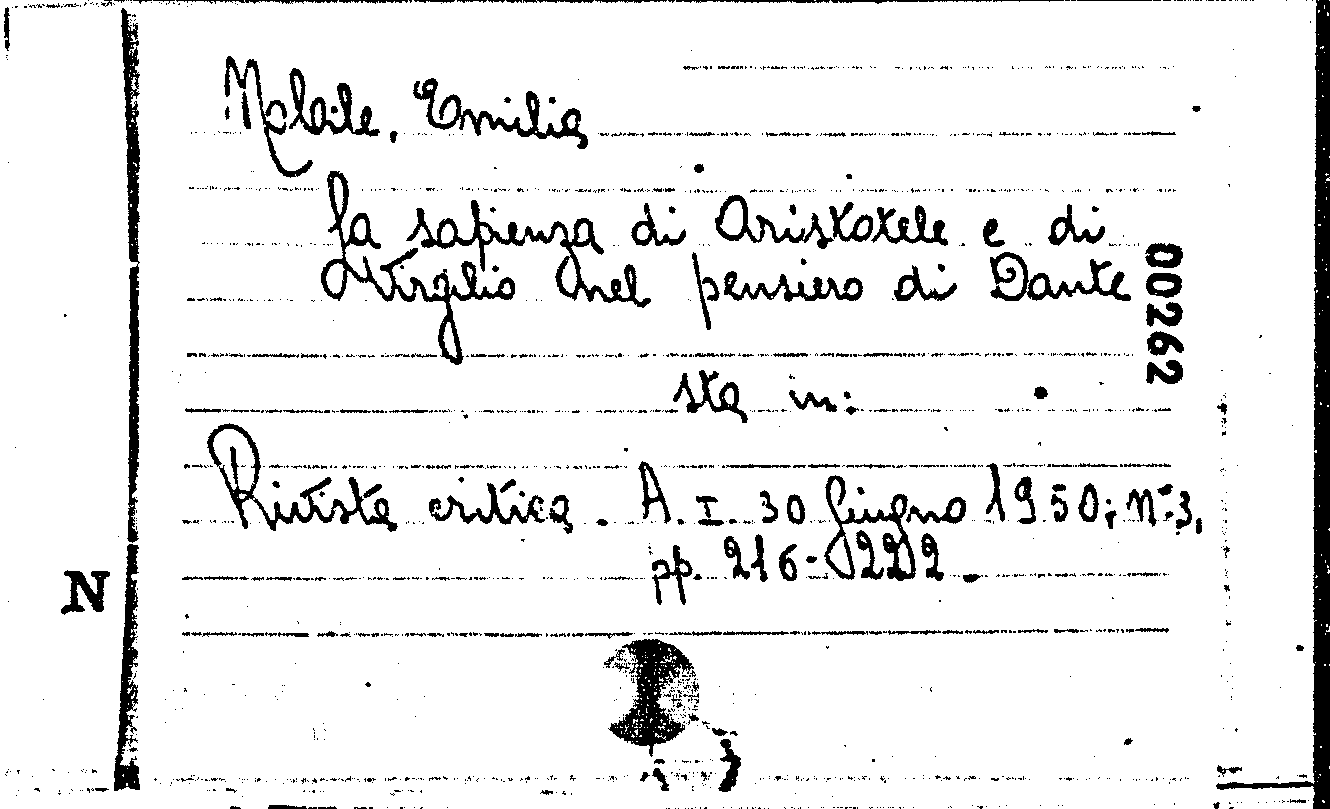 Nobile, Emilia
La sapienza di Aristotele e di
Virgilio nel pensiero di Dante
sta in:
Rivista critica. A. I. 30 Giugno 1950; n° 3,
pp. 216-222.
00262
N